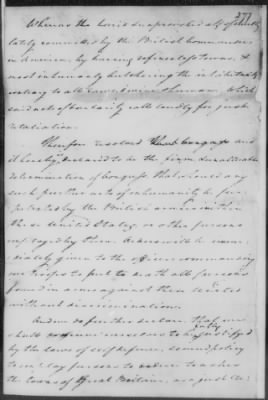 271
Whereas the horrid and unprovoked acts of cruelty
lately committed by the British commanders
in America, by burning defenceless towns, &
most inhumanly butchering the inhabitants
contrary to all Laws divine & human. Which
said acts of barbarity calls loudly for just
retaliation.
Therefore resolved that Congress and
it hereby declared to be the firm & unalterable
determination of Congress that should any
such further acts of inhumanity be per
petrated by the British armies within
these United States, or other persons
employed by them. Orders will be imme
diately given to the officers commanding
our troops to put to death all persons
found in arms against these United
without discrimination.
And we do further declare that we
shall
by the laws of self defence, sound policy
to employ persons to reduce to ashes
the towns of Great Britain